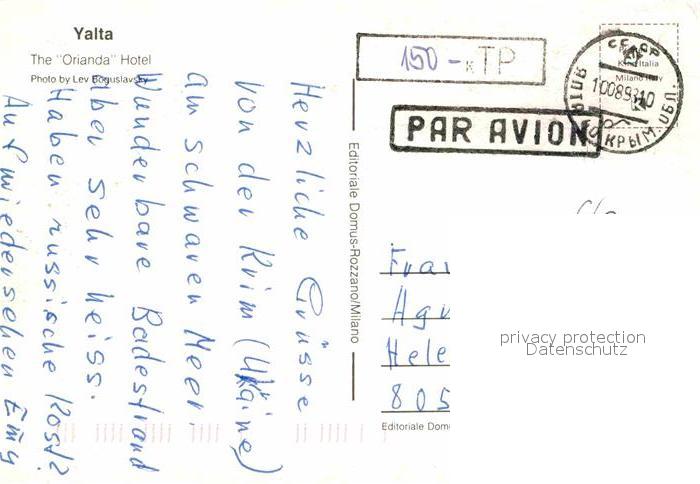 Yalta
The "Orianda" Hotel
Photo by Lev Boguslavsky
Herzliche Grüsse
von der Krim (Ukraine)
am schwaren Meer.
Wunderbare Badestrand
aber sehr heiss.
Haben russische Kost?
Auf wiedersehen Emy
Editoriale Domus-Rozzano/Milano
150 - к ТР
PAR AVION
СССР
100893 10
КРЫМ. ОБЛ.
Kina Italia
Milano Italy
Frau
Agn
Hele
805
Editoriale Domu
privacy protection
Datenschutz